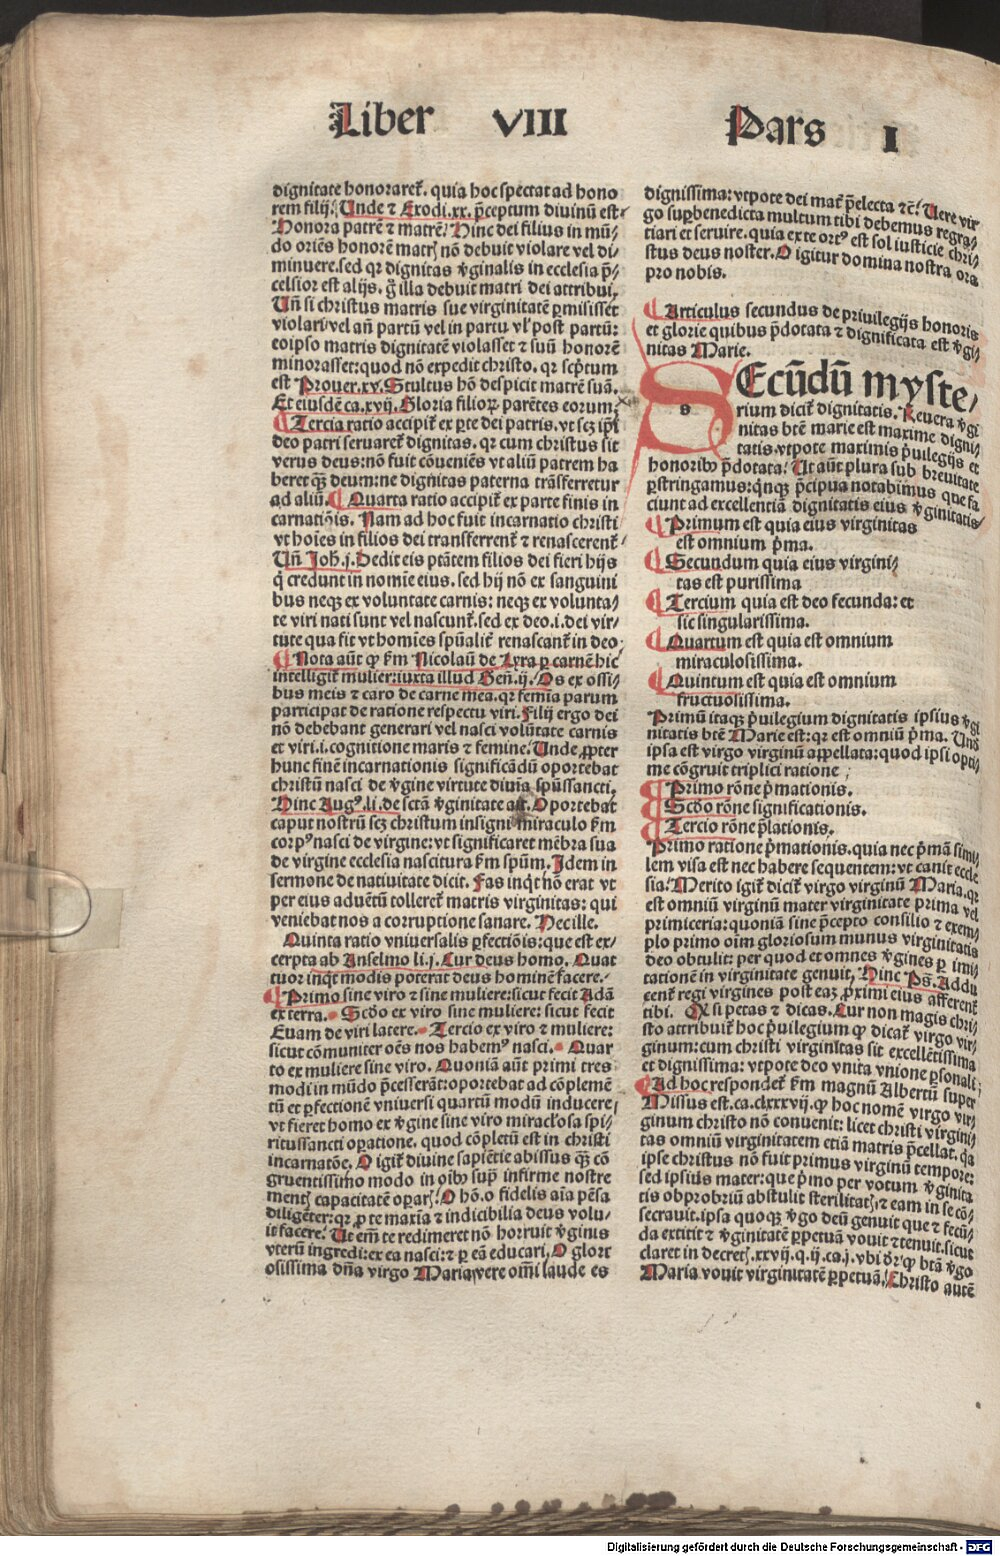 Liber VIII Pars I
dignitate honoraret᷑. quia hoc spectat ad hono
rem filij. Unde ⁊ Exodi.xx. p̄ceptum diuinū est⸗
Honora patrē ⁊ matrē. Hinc dei filius in mū⸗
do oriēs honorē matrꝭ nō debuit violare vel di⸗
minuere. sed qr dignitas v̓ginalis in ecclesia p̄⸗
celsior est alijs. g̊ illa debuit matri dei attribui.
Uñ si christus matris sue virginitatē ꝑmisisset
violari vel añ partū vel in partu vl̓ post partū:
eoipso matris dignitatē violasset ⁊ suū honorē
minorasset: quod nō expedit christo. qr scp̄tum
est Prouer.xv. Stultus hō despicit matrē suā.
Et eiusdē ca.xvij. Gloria filioꝝ parētes eorum.
Tercia ratio accipit᷑ ex ꝑte dei patris. vt scꝫ ip̄i
deo patri seruaret᷑ dignitas. qr cum christus sit
verus deus: nō fuit cōueniēs vt aliū patrem ha
beret qꝫ deum: ne dignitas paterna trāsferretur
ad aliū. Quarta ratio accipit᷑ ex parte finis in
carnatiōis. Nam ad hoc fuit incarnatio christi
vt hoīes in filios dei transferrent᷑ ⁊ renascerent᷑
Uñ Joh.j. Dedit eis ptātem filios dei fieri hijs
q̇ credunt in nomīe eius. sed hij nō ex sanguini
bus neqꝫ ex voluntate carnis: neqꝫ ex volunta⸗
te viri nati sunt vel nascunt᷑. sed ex deo.i. dei vir⸗
tute qua fit vt homīes spūalit᷑ renascant᷑ in deo
Nota aūt ꝙ ẜm Nicolaū de Lyra ꝑ carnē hic
intelligit᷑ mulier: iuxta illud Geñ.ij. Os ex ossi⸗
bus meis ⁊ caro de carne mea. qr femīa parum
participat de ratione respectu viri. Filij ergo dei
nō debebant generari vel nasci volūtate carnis
et viri.i. cognitione maris ⁊ femine. Unde ꝓpter
hunc finē incarnationis significādū oportebat
christū nasci de v̓gine virtute diuīa spūssancti.
Hinc Augꝰ. li. de sctā v̓ginitate ait. Oportebat
caput nostrū scꝫ christum insigni miraculo ẜm
corpꝰ nasci de virgine: vt significaret mēbra sua
de virgine ecclesia nascitura ẜm spūm. Idem in
sermone de natiuitate dicit. Fas inq̇t nō erat vt
per eius aduētū tolleret᷑ matris virginitas: qui
veniebat nos a corruptione sanare. Hec ille.
Quinta ratio vniuersalis ꝑfectiōis: que est ex⸗
cerpta ab Anselmo li.j. Cur deus homo. Quat
tuor inq̇t modis poterat deus hominē facere.
Primo sine viro ⁊ sine muliere: sicut fecit Adā
ex terra. Scd̓o ex viro sine muliere: sicut fecit
Euam de viri latere. Tercio ex viro ⁊ muliere:
sicut cōmuniter oēs nos habemꝰ nasci. Quar
to ex muliere sine viro. Quoniā aūt primi tres
modi in mūdo p̄cesserāt: oportebat ad cōplemē
tū et ꝑfectionē vniuersi quartū modū inducere
vt fieret homo ex v̓gine sine viro miracl̓osa spi⸗
ritussancti oꝑatione. quod cōpletū est in christi
incarnatōe. O igit᷑ diuine sapiētie abissus qꝫ cō
gruentissimo modo in oībꝫ suꝑ infirme nostre
mentꝭ capacitatē oꝑarꝭ. O hō. o fidelis aīa pēsa
diligēter: qr ꝓ te maxīa ⁊ indicibilia deus volu⸗
it facere. Ut em̄ te redimeret nō horruit v̓ginis
vterū ingredi: ex ea nasci: ⁊ ꝑ eā educari. O glori
osissima dn̄a virgo Maria, vere om̄i laude es
dignissima: vtpote dei mat᷑ p̄electa ⁊c̄. Uere vir
go suꝑbenedicta multum tibi debemus regra⸗
tiari et seruire. quia ex te ortꝰ est sol iusticie chri⸗
stus deus noster. O igitur domina nostra ora
pro nobis.
Articulus secundus de priuilegijs honoris
et glorie quibus p̄dotata ⁊ dignificata est v̓gi⸗
nitas Marie.
SEcūdū myste⸗
s
rium dicit᷑ dignitatis. Reuera v̓gi
nitas btē marie est maxime digni⸗
tatis. vtpote maximis p̓uilegijs et
honoribꝫ p̄dotata. Ut aūt plura sub breuitate
ꝑstringamus: q̇nqꝫ p̄cipua notabimus que fa
ciunt ad excellentiā dignitatis eius v̓ginitatis⸗
Primum est quia eius virginitas
est omnium p̓ma.
Secundum quia eius virgini⸗
tas est purissima
Tercium quia est deo fecunda: et
sic singularissima.
Quartum est quia est omnium
miraculosissima.
Quintum est quia est omnium
fructuosissima.
Primū itaqꝫ p̓uilegium dignitatis ipsius v̓gi
nitatis btē Marie est: qr est omniū p̓ma. Unde
ipsa est virgo virginū appellata: quod ipsi opti⸗
me cōgruit triplici ratione
Primo rōne p̓mationis.
Scd̓o rōne significationis.
Tercio rōne p̄lationis.
Primo ratione p̓mationis. quia nec p̓mā simi⸗
lem visa est nec habere sequentem: vt canit eccle
sia. Merito igit᷑ dicit᷑ virgo virginū Maria. qr
est omniū virginū mater virginitate prima vel
primiceria: quoniā sine p̄cepto consilio ⁊ exem⸗
plo primo oīm gloriosum munus virginitatis
deo obtulit: per quod et omnes v̓gines ꝑ imi⸗
tationē in virginitate genuit. Hinc Ps̄. Addu
cent᷑ regi virgines post eaꝫ ꝓximi eius afferent᷑
tibi. Qꝫ si petas ⁊ dicas. Cur non magis chri⸗
sto attribuit᷑ hoc p̓uilegium ꝙ dicat᷑ virgo vir⸗
ginum: cum christi virginitas sit excellētissima
et dignissima: vtpote deo vnita vnione ꝑsonali
Ad hoc respondet᷑ ẜm magnū Albertū super
Missus est. ca.clxxxvij. ꝙ hoc nomē virgo vir⸗
ginum christo nō conuenit: licet christi virgini⸗
tas omniū virginitatem etiā matris p̄cellat. qa
ipse christus nō fuit primus virginū tempore:
sed ipsius mater: que p̓mo per votum v̓ginita
tis obprobriū abstulit sterilitatꝭ, ⁊ eam in se cō⸗
secrauit. ipsa quoqꝫ v̓go deū genuit que ⁊ fecū⸗
da extitit ⁊ v̓ginitatē ꝑpetuā vouit ⁊ tenuit. sicut
claret in decretꝭ. xxvij. q.ij. ca.j. vbi dr̄ ꝙ btā v̓go
Maria vouit virginitatē ꝑpetuā. Christo autē
Digitalisierung gefördert durch die Deutsche Forschungsgemeinschaft - DFG